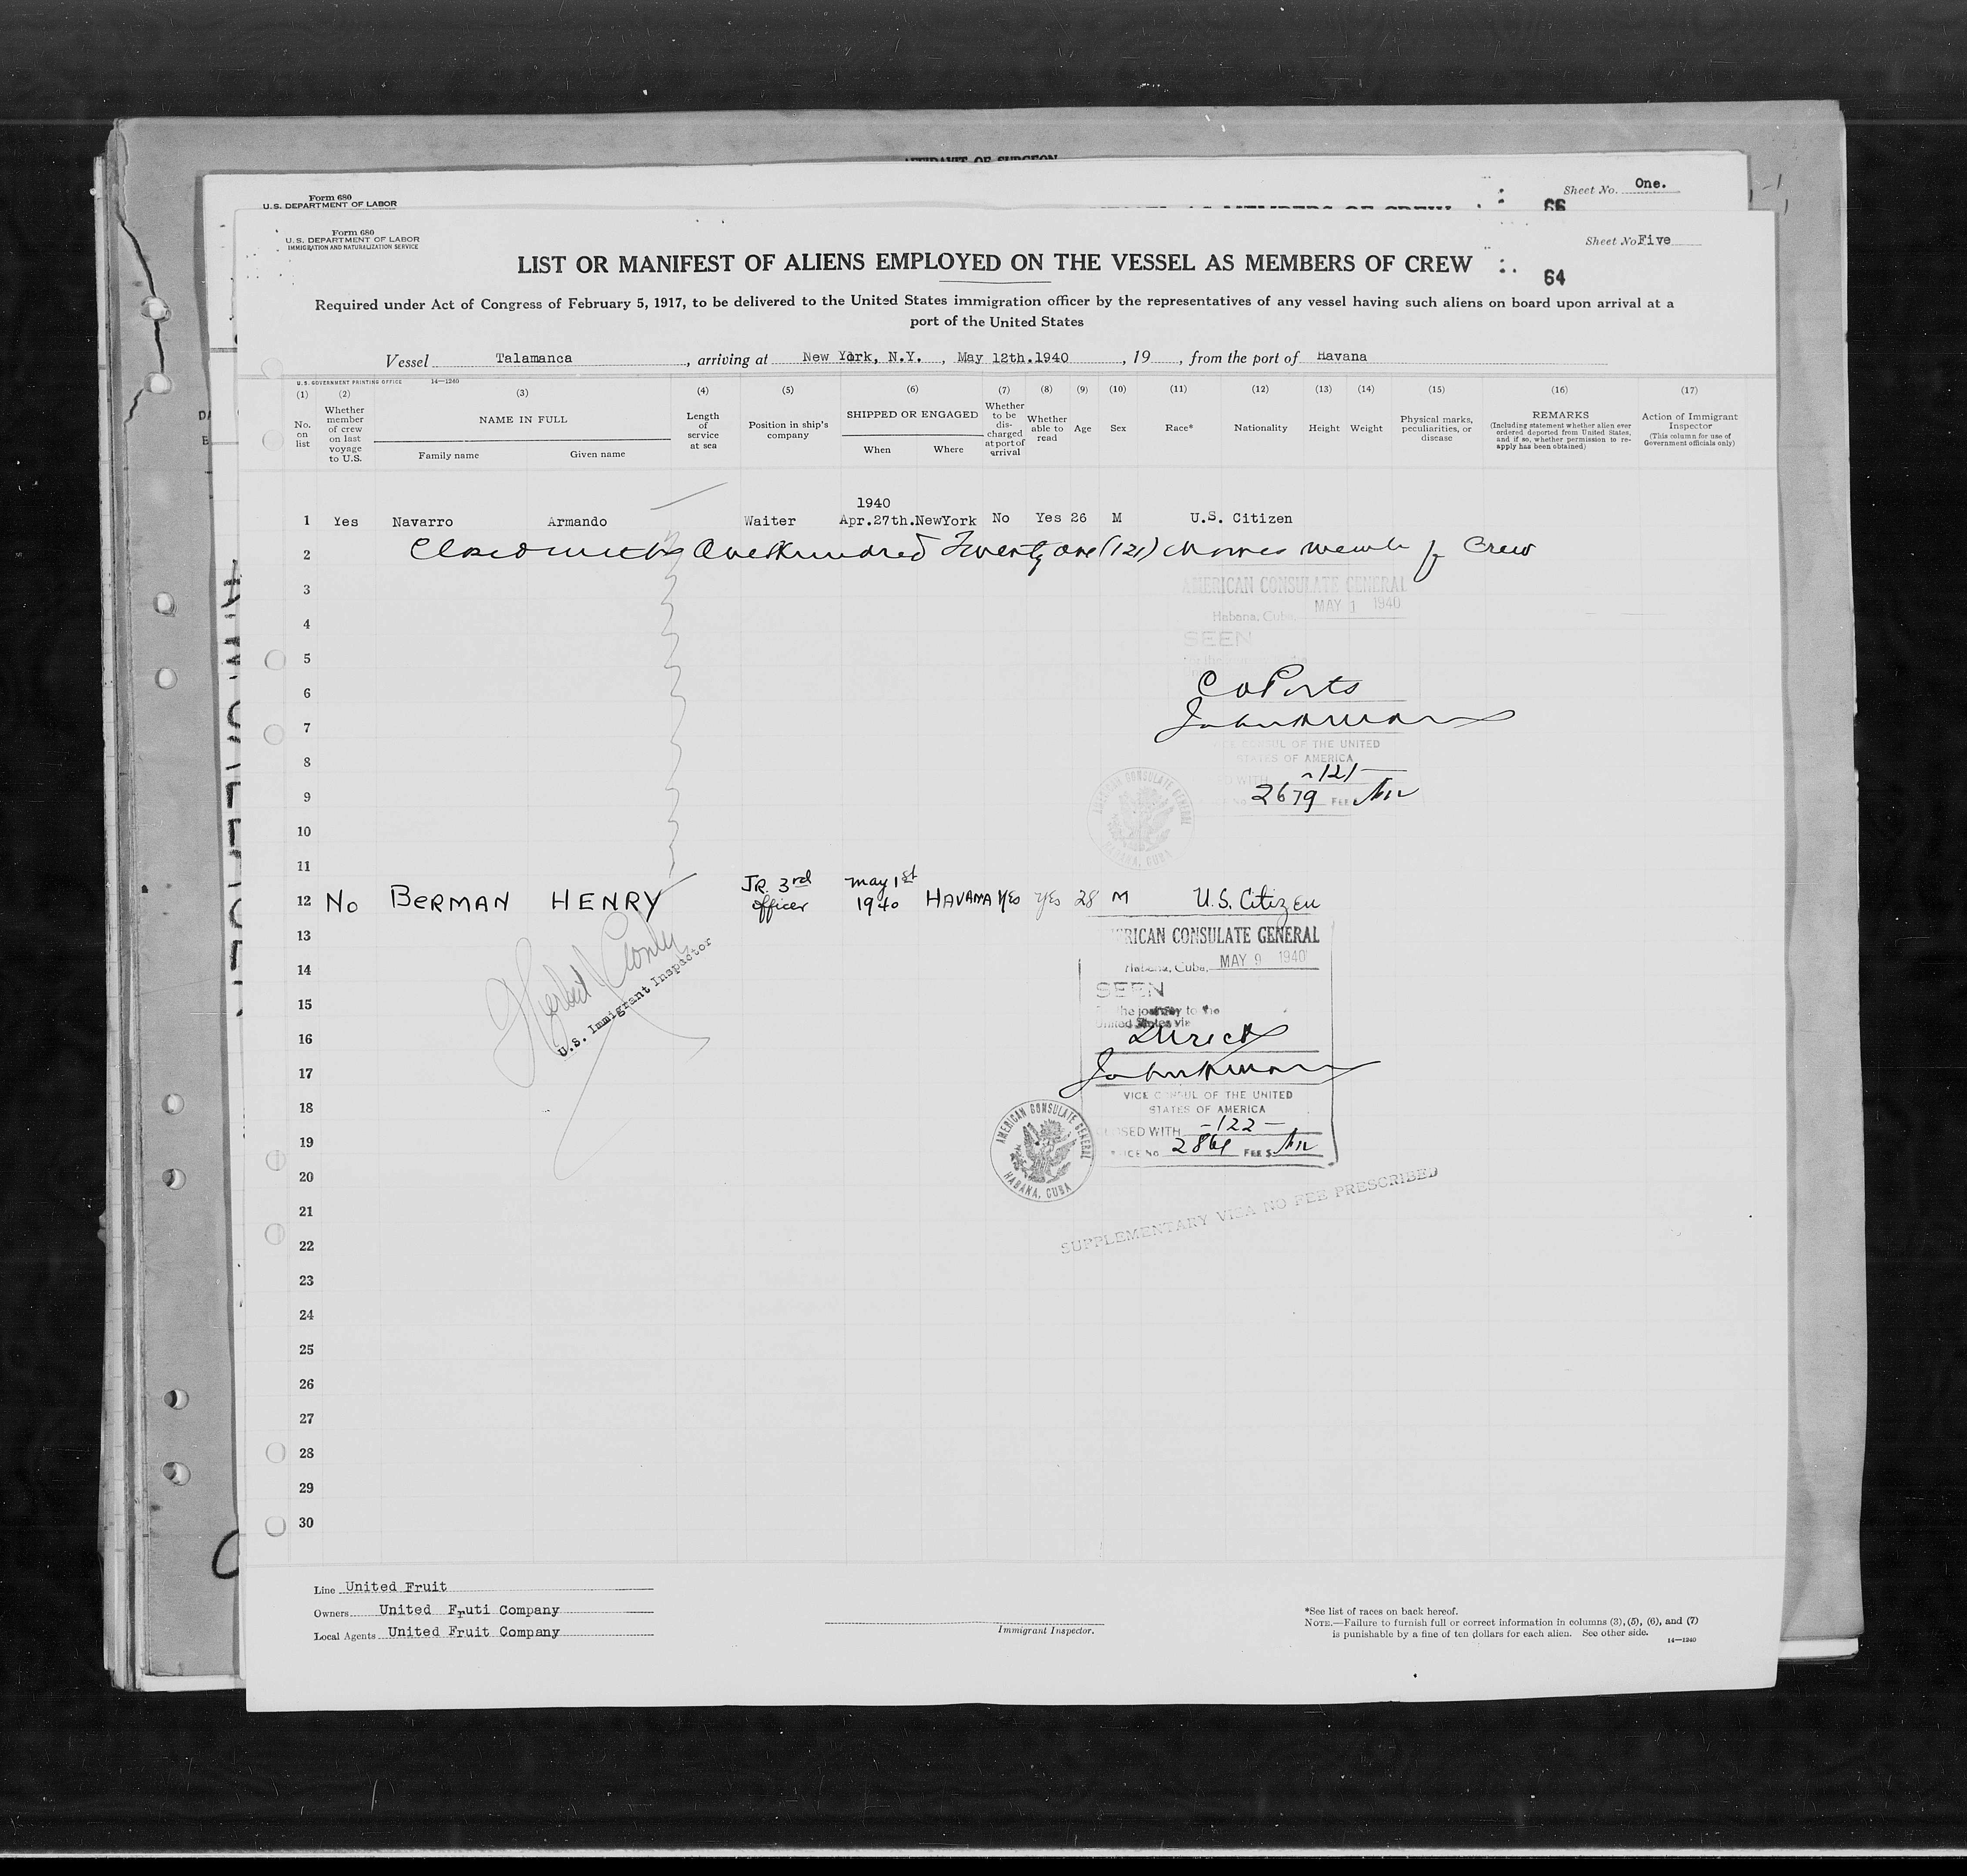 Form 680
U.S. DEPARTMENT OF LABOR
Sheet No. One.
66
Form 680
U.S. DEPARTMENT OF LABOR
IMMIGRATION AND NATURALIZATION SERVICE
Sheet No Five
LIST OR MANIFEST OF ALIENS EMPLOYED ON THE VESSEL AS MEMBERS OF CREW
64
Required under Act of Congress of February 5, 1917, to be delivered to the United States immigration officer by the representatives of any vessel having such aliens on board upon arrival at a
port of the United States
Vessel Talamanca, arriving at New York, N.Y., May 12th.1940, 19, from the port of Havana
U.S. GOVERNMENT PRINTING OFFICE 14—1240
(1) (2) (3) (4) (5) (6) (7) (8) (9) (10) (11) (12) (13) (14) (15) (16) (17)
No. on list
Whether member of crew on last voyage to U.S.
NAME IN FULL
Family name Given name
Length of service at sea
Position in ship's company
SHIPPED OR ENGAGED
When Where
Whether to be discharged at port of arrival
Whether able to read
Age
Sex
Race*
Nationality
Height
Weight
Physical marks, peculiarities, or disease
REMARKS
(Including statement whether alien ever ordered deported from United States, and if so, whether permission to reapply has been obtained)
Action of Immigrant Inspector
(This column for use of Government officials only)
1940
1 Yes Navarro Armando Waiter Apr.27th. NewYork No Yes 26 M U.S. Citizen
2 Closed with One Hundred Twenty one (121) Crew
3
AMERICAN CONSULATE GENERAL
Habana, Cuba, MAY 1 1940
4
SEEN
5
6
7
VICE CONSUL OF THE UNITED
8
STATES OF AMERICA
WITH -121-
9
2679 FEE
AMERICAN CONSULATE GENERAL
HABANA, CUBA
10
11
12 No BERMAN HENRY JR. 3rd officer May 1st 1940 HAVANA Yes Yes 28 M U.S. Citizen
13
AMERICAN CONSULATE GENERAL
14
Habana, Cuba, MAY 9 1940
15
SEEN
the journey to the
United States via
16
Direct
17
U.S. Immigrant Inspector
VICE CONSUL OF THE UNITED
18
STATES OF AMERICA
CLOSED WITH -122-
19
FEE $
AMERICAN CONSULATE GENERAL
HABANA, CUBA
20
SUPPLEMENTARY VISA NO FEE PRESCRIBED
21
22
23
24
25
26
27
28
29
30
Line United Fruit
Owners United Fruti Company
Local Agents United Fruit Company
Immigrant Inspector.
*See list of races on back hereof.
NOTE.—Failure to furnish full or correct information in columns (3), (5), (6), and (7)
is punishable by a fine of ten dollars for each alien. See other side.
14—1240